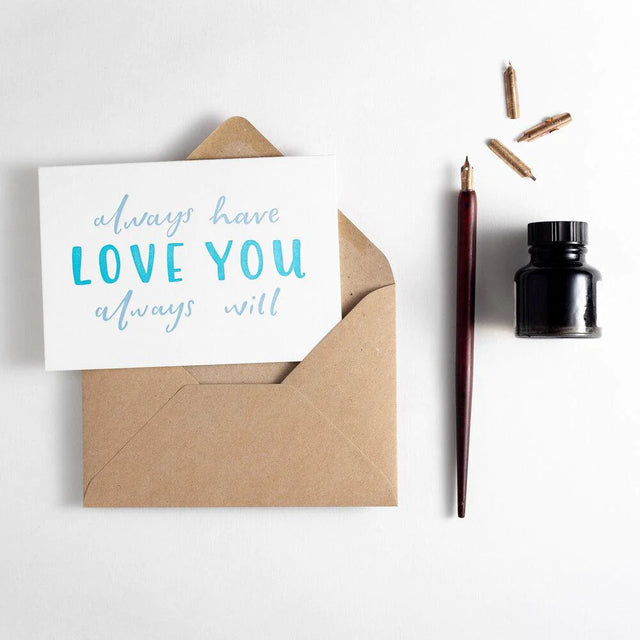 always have
LOVE YOU
always will